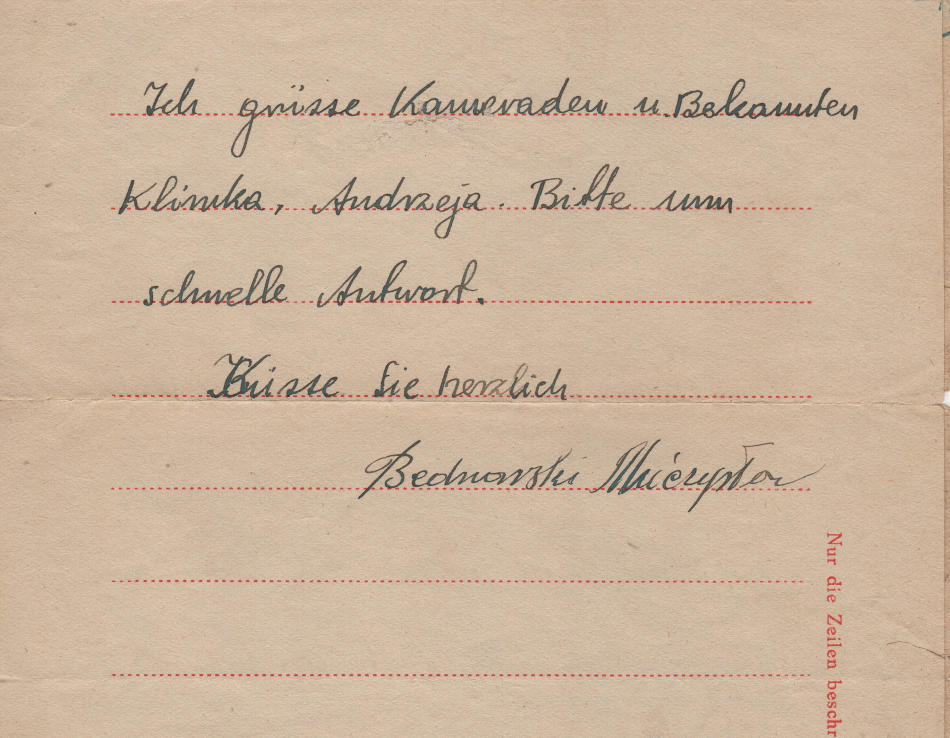 Ich grüsse Kameraden u. Bekannten
Klimka, Andrzeja. Bitte um
schnelle Antwort.
Küsse Sie herzlich
Bednarski
Nur die Zeilen beschr